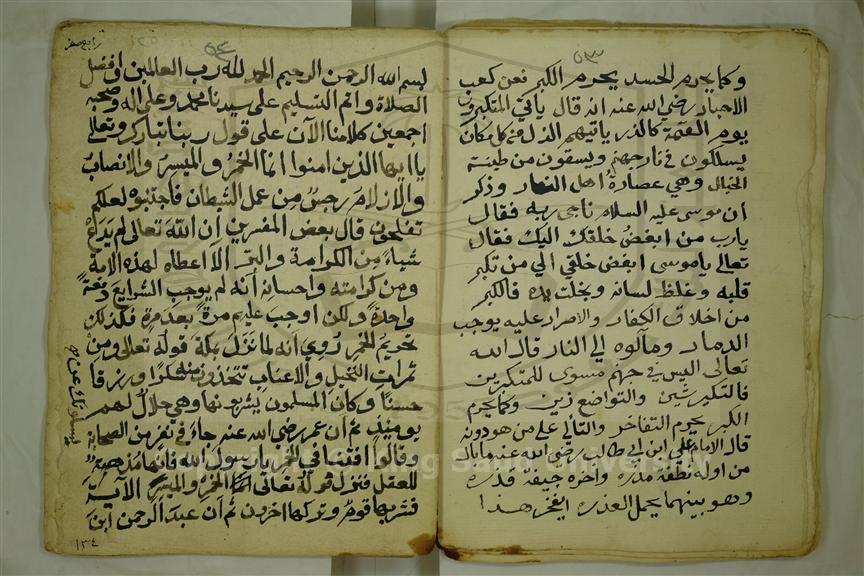 ٥٣
وكما يحرم الحسد يحرم الكبر فعن كعب
الاحبار رضي الله عنه انه قال ياتي المتكبرون
يوم القيمة كالذر ياتيهم الذل من كل مكان
يسلكون في نار جهنم ويسقون من طينة
الخبال وهي عصارة اهل النار وذكر
أن موسى عليه السلام ناجى ربه فقال
يارب من ابغض خلقك اليك فقال
تعالى ياموسى ابغض خلقي الي من تكبر
قلبه وغلظ لسانه وبخلت يده فالكبر
من اخلاق الكفار والاصرار عليه يوجب
الدمار ومآلوه الي النار قال الله
تعالى اليس في جهنم مثوى للمتكبرين
فالتكبر شين والتواضع زين وكما يحرم
الكبر يحرم التفاخر والتعالي على من هو دونه
قال الامام علي ابن ابي طالب رضي الله عنه ما بال
من اوله نطفة مذره واخره جيفة قذره
وهو بينهما يحمل العذره ايفخر هذا
٥٤
رابع صفر
بسم الله الرحمن الرحيم الحمد لله رب العالمين وافضل
الصلاة واتم التسليم على سيدنا محمد وعلى اله وصحبه
اجمعين كلامنا الآن على قول ربنا تبارك وتعالى
ياايها الذين امنوا انما الخمر والميسر والانصاب
والازلام رجس من عمل الشيطان فاجتنبوه لعلكم
تفلحون قال بعض المفسرين ان الله تعالى لم يدع
شياء من الكرامة والبر الا اعطاه لهذه الامة
ومن كرامته واحسانه أنه لم يوجب الشرايع دفعةً
واحدةً ولكن اوجب عليهم مرة بعد مرة فكذلك
تحريم الخمر رُوي انه لما نزل بمكة قوله تعالى ومن
ثمرات النخيل والاعناب تتخذون منه سكرا ورزقا
حسنا وكان المسلمون يشربونها وهي حلال لهم
يومئذ ثم أن عمر رضي الله عنه جاء في نفر من الصحابة
وقالوا افتنا في الخمر يارسول الله فانها مذهبة
للعقل فنزل قوله تعالى الخمر والميسر الآية
فشربها قوم وتركها اخرون ثم أن عبد الرحمن ابن
يسئلونك عن
١٣٤
King Saud University